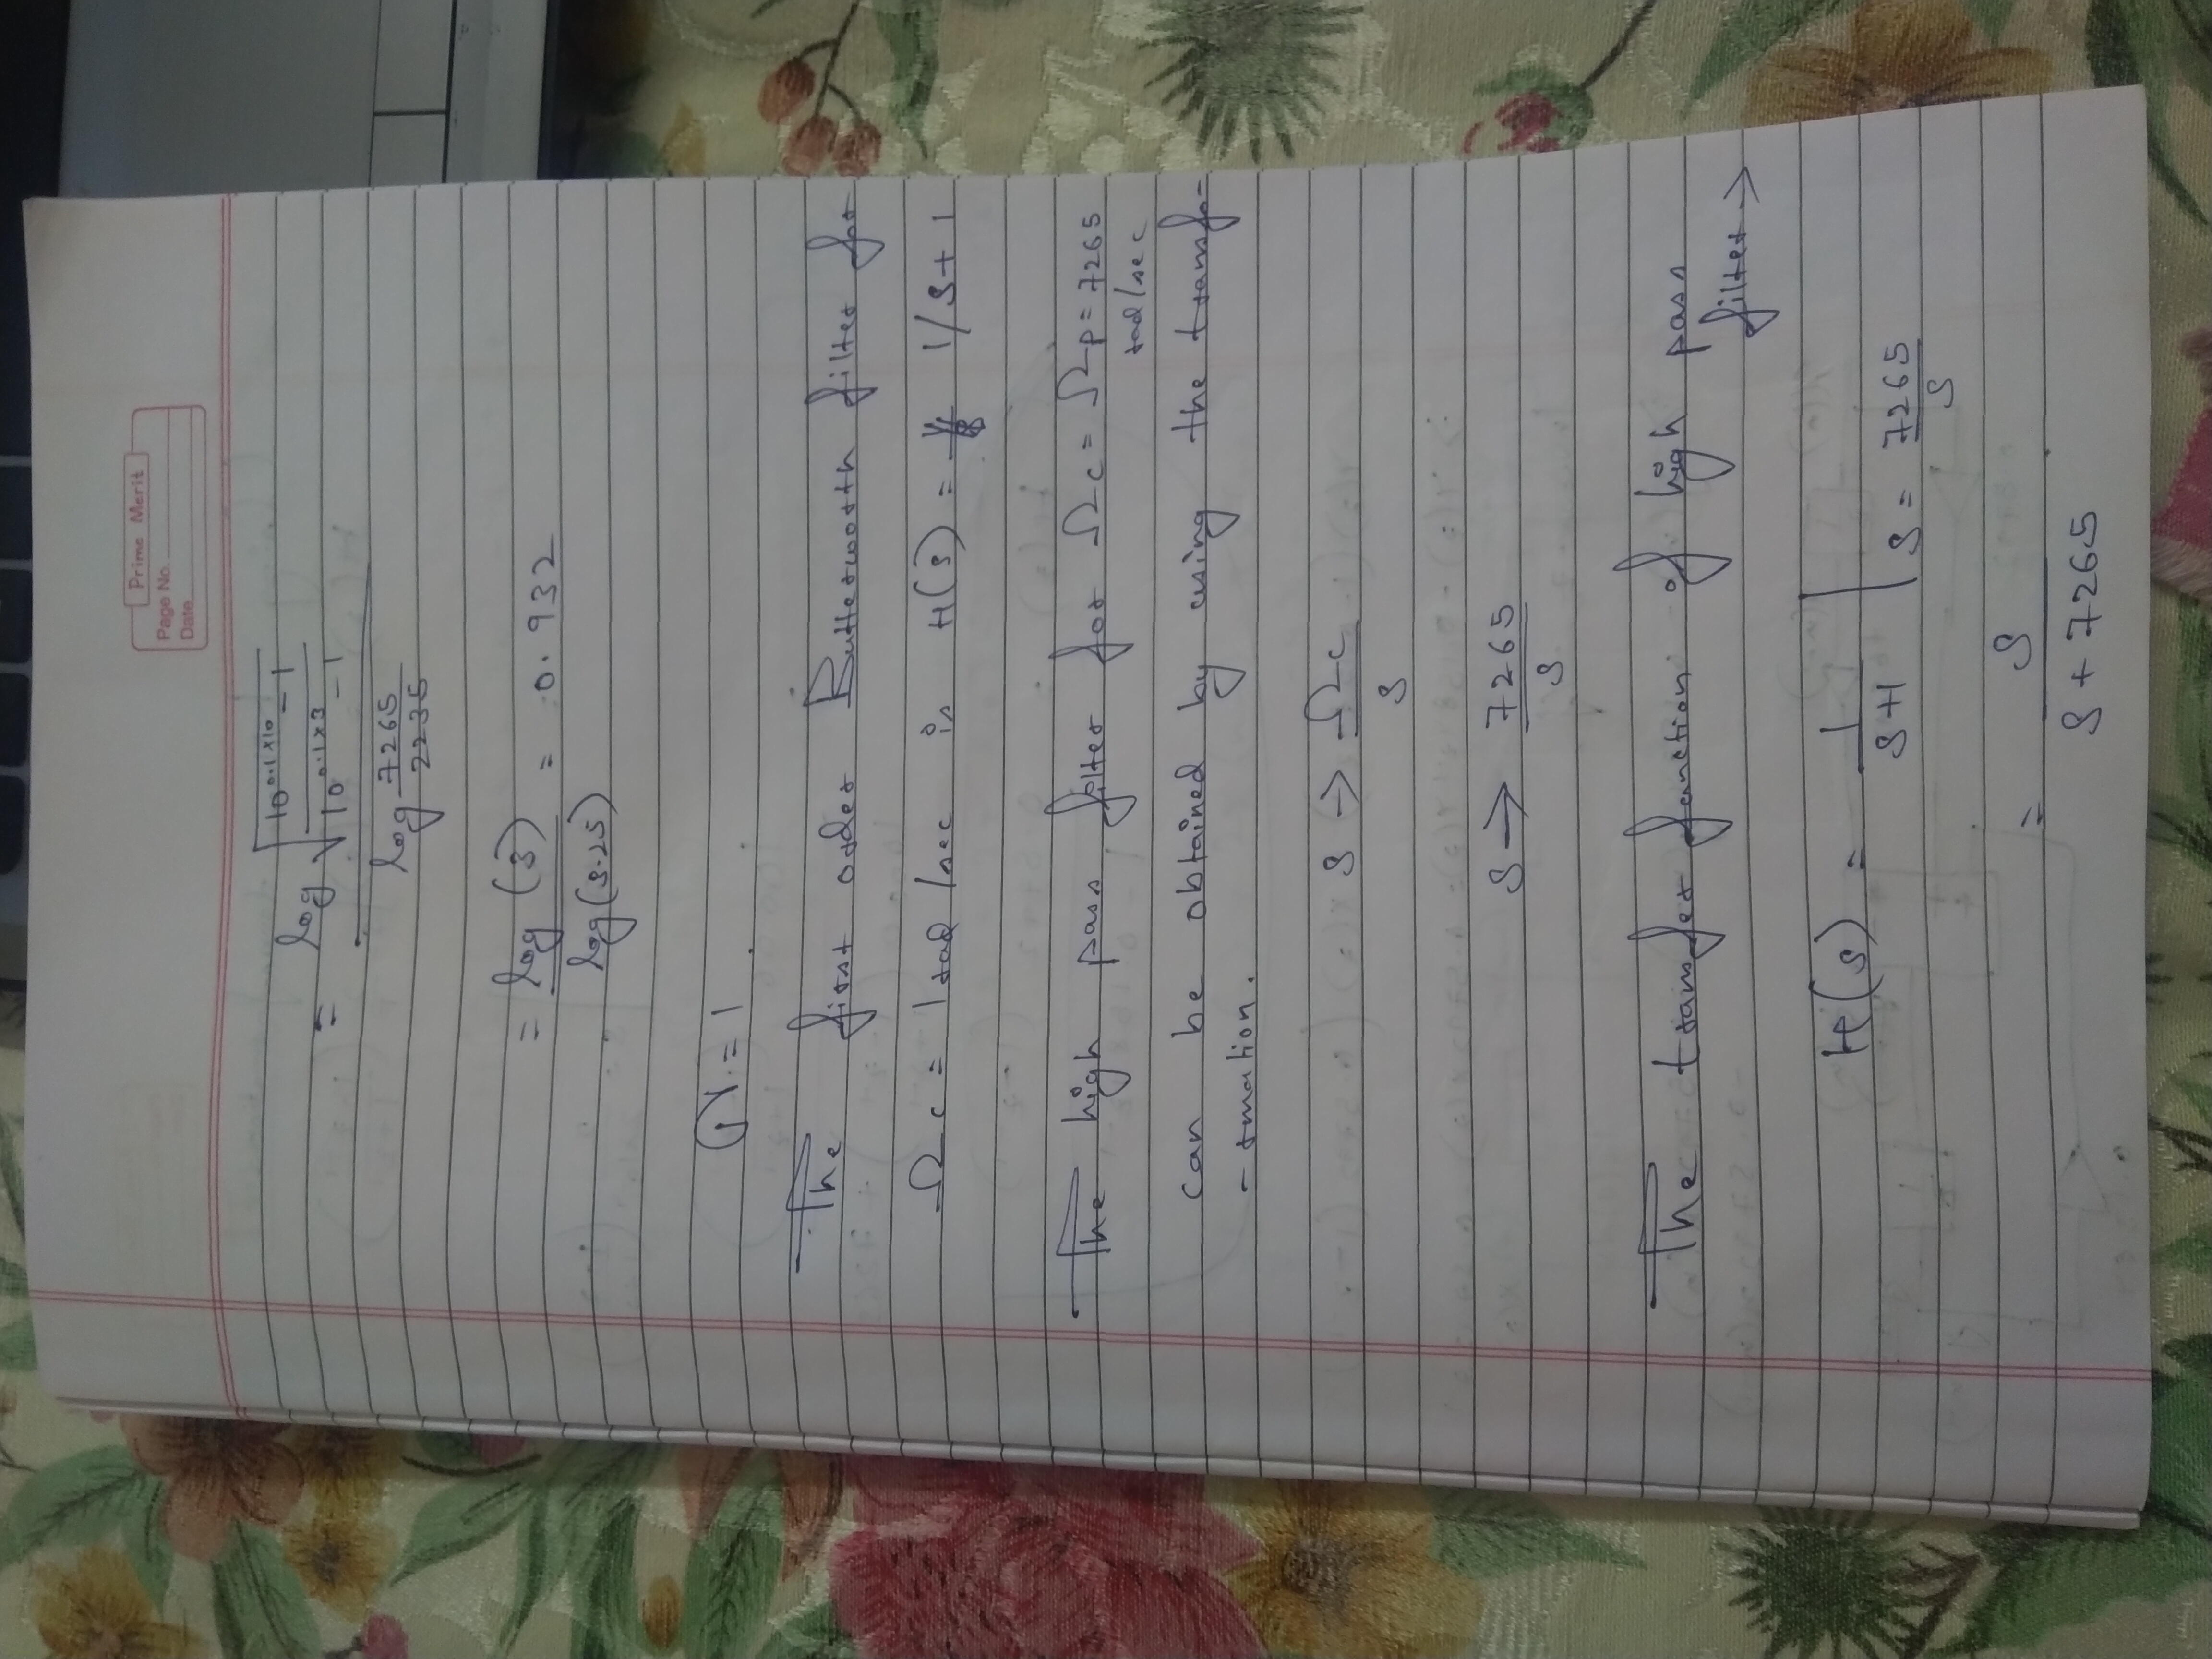 Prime Merit
Page No.
Date
= log √ 10^0.1×10 - 1 / 10^0.1×3 - 1
log 7265 / 2235
= log (3) / log (3.25) = 0.932
N = 1
The first order Butterworth filter for
Ωc = 1 rad/sec is H(s) = 1/s+1
The high pass filter for Ωc = Ωp = 7265
rad/sec
can be obtained by using the transfo-
-rmation.
s → Ωc / s
s → 7265 / s
The transfer function of high pass
filter →
H(s) = 1 / s+1 | s = 7265 / s
= s / s + 7265